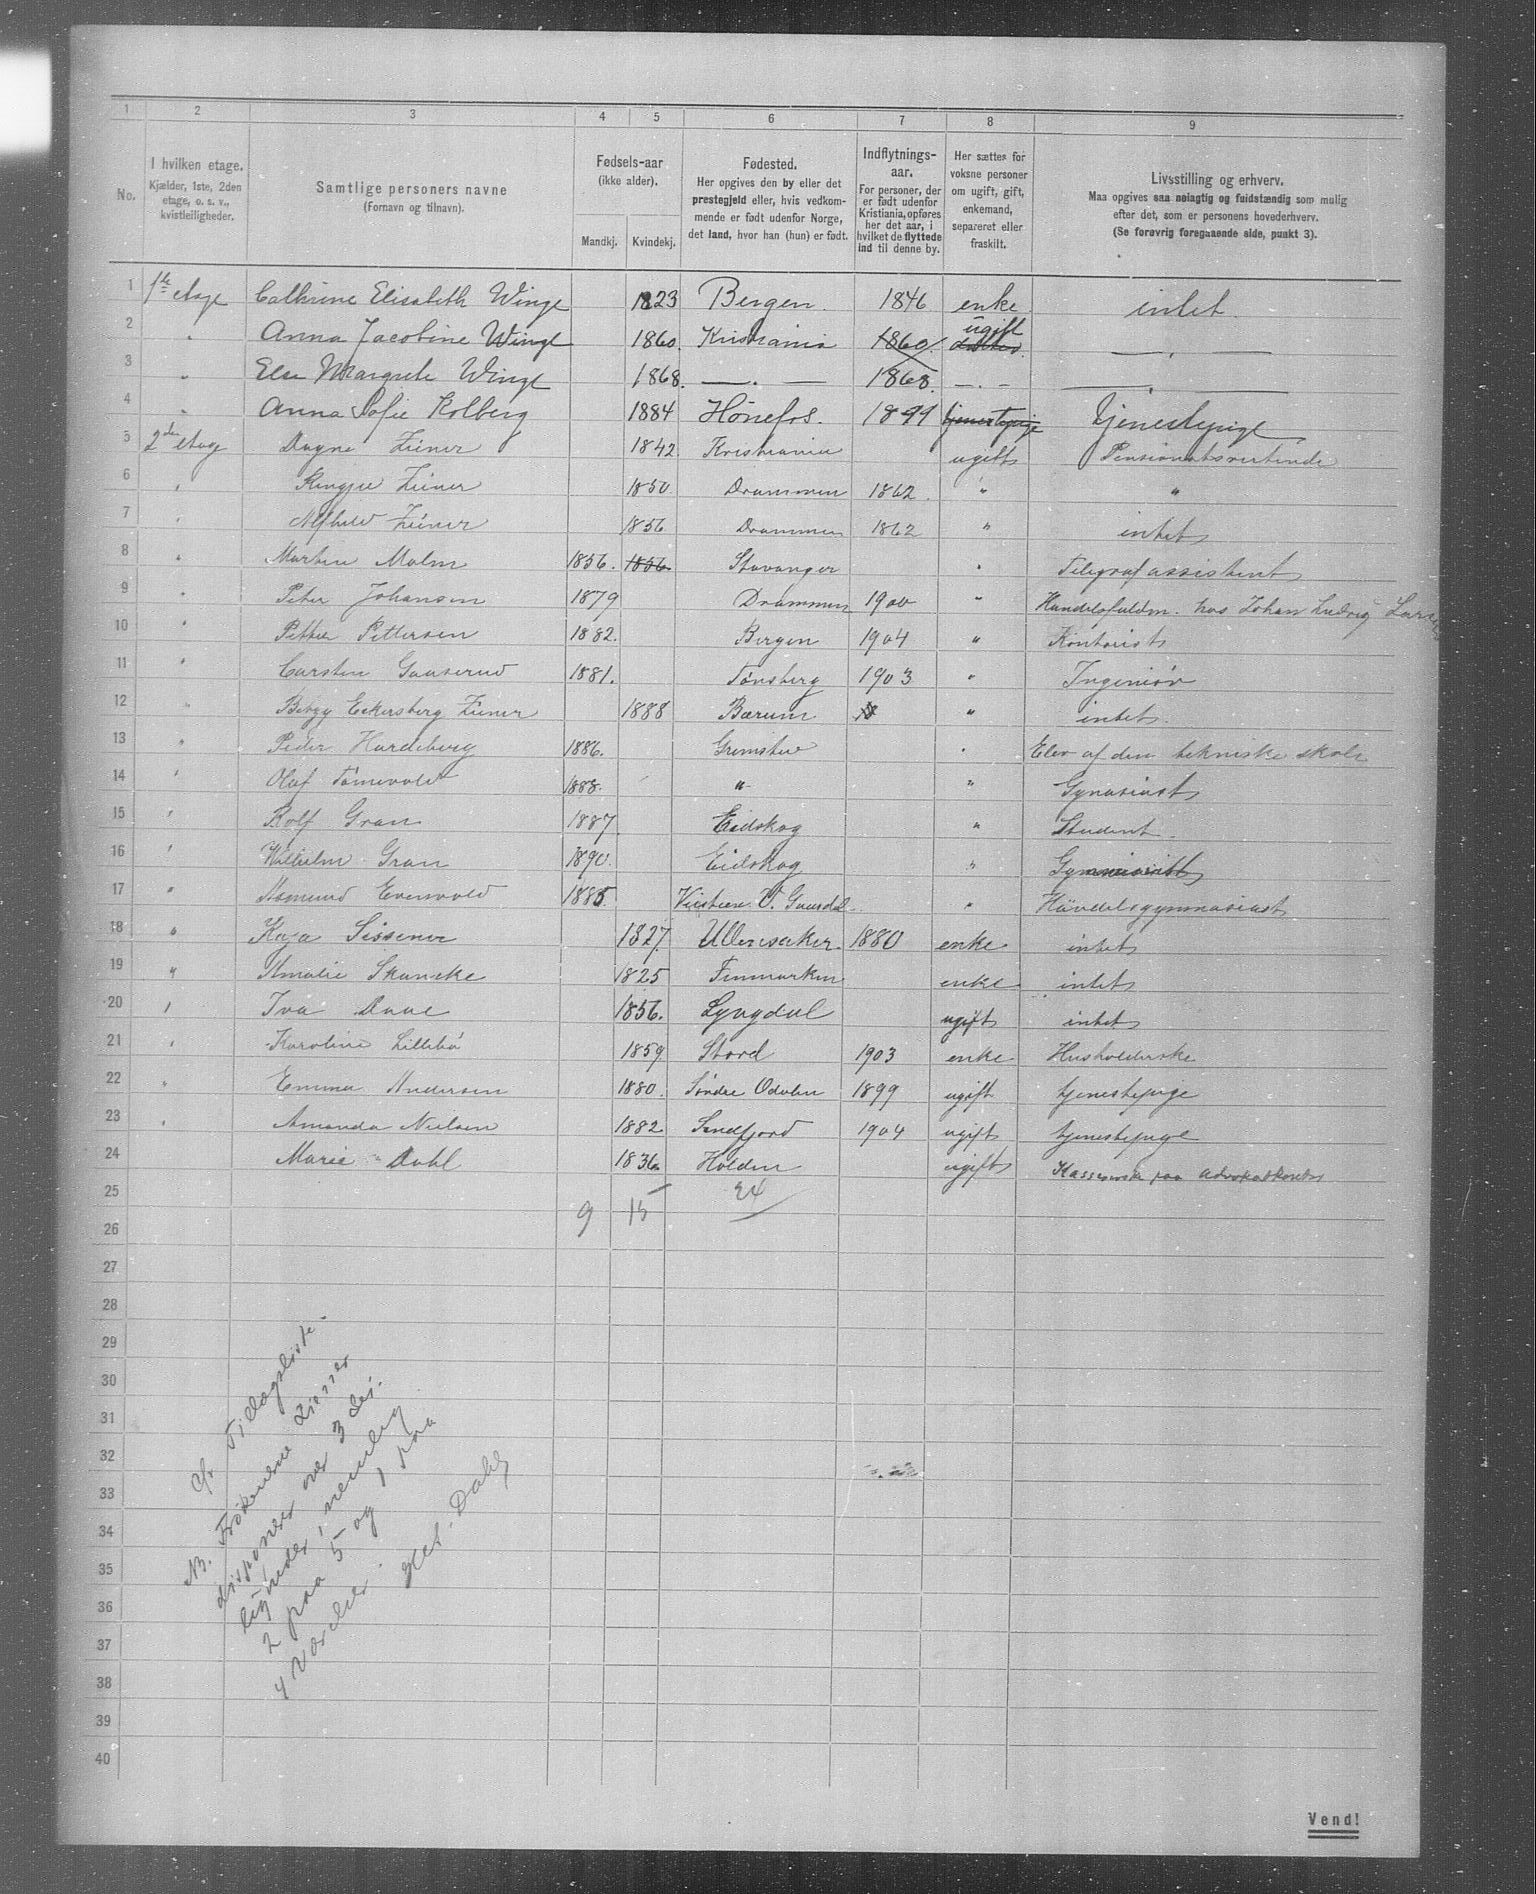 1 2 3 4 5 6 7 8 9
No.
I hvilken etage.
Kjælder, 1ste, 2den
etage, o. s. v.,
kvistleiligheder.
Samtlige personers navne
(Fornavn og tilnavn).
Fødsels-aar
(ikke alder).
Mandkj. Kvindekj.
Fødested.
Her opgives den by eller det
prestegjeld eller, hvis vedkom-
mende er født udenfor Norge,
det land, hvor han (hun) er født.
Indflytnings-
aar.
For personer, der
er født udenfor
Kristiania, opføres
her det aar, i
hvilket de flyttede
ind til denne by.
Her sættes for
voksne personer
om ugift, gift,
enkemand,
separeret eller
fraskilt.
Livsstilling og erhverv.
Maa opgives saa nøiagtig og fuldstændig som mulig
efter det, som er personens hovederhverv.
(Se forøvrig foregaaende side, punkt 3).
1 1ste etage Cathrine Elisabeth Winge 1823 Bergen. 1846 enke intet.
2 " Anna Jacobine Winge 1860. Kristiania 1860. ugift — " —
3 " Else Margrete Winge 1868. — " — 1868. — " — — " —
4 " Anna Sofie Kolberg 1884 Hønefos. 1899 tjenestepige tjenestepige
5 2den etage Dagne Ziener 1842 Kristiania ugift Pensionatsvertinde
6 " Ziener 1850 Drammen 1862. " "
7 " Alfhild Ziener 1856 Drammen 1862 " intet
8 " Martin Malm 1856. 1856. Stavanger " Telegrafassistent
9 " Peter Johansen 1879 Drammen 1900 " Handelsfuldm. hos Johan Ludvig
10 " Petter Pettersen 1882. Bergen 1904 " Kontorist
11 " Carsten Gaaserud 1881. Tønsberg 1903 " Ingeniør
12 " Betzy Eckersberg Ziener 1888 Bærum " intet.
13 " Peder Hardeberg 1886. Grimstad " Elev af den tekniske skole
14 " Olaf Tønnevold 1888. " " Gynasiast
15 " Rolf Gran 1887. Eidskog " Student.
16 " Wilhelm Gran 1890. Eidskog " Gymnasiast
17 " Aasmund Evenvold 1885 Gausdal " Handelsgymnasiast
18 " Kaja Sissener 1827. Ullensaker 1880 enke intet
19 " Amalie Skancke 1825 Finmarken enke intet
20 " Iva Daae 1856. Lyngdal ugift intet
21 " Karoline Lillebø 1859 Stord 1903 enke Husholderske
22 " Emma Andersen 1880. Søndre Odalen 1899 ugift tjenestepige
23 " Amanda Nielsen 1882 Sandefjord 1904 ugift tjenestepige
24 Marie Dahl 1836. Holden ugift Kassererske paa advokatkontor
25 9 15 24
26
27
28
29
30
31
32
33
34
35
36
37
38
39
40
cfr. Tillægsliste.
NB. Frøknerne Ziener
disponerer over 3 lei-
ligheder, nemlig
2 paa 5 og 1 paa
4 værelser. Dahl
Vend!